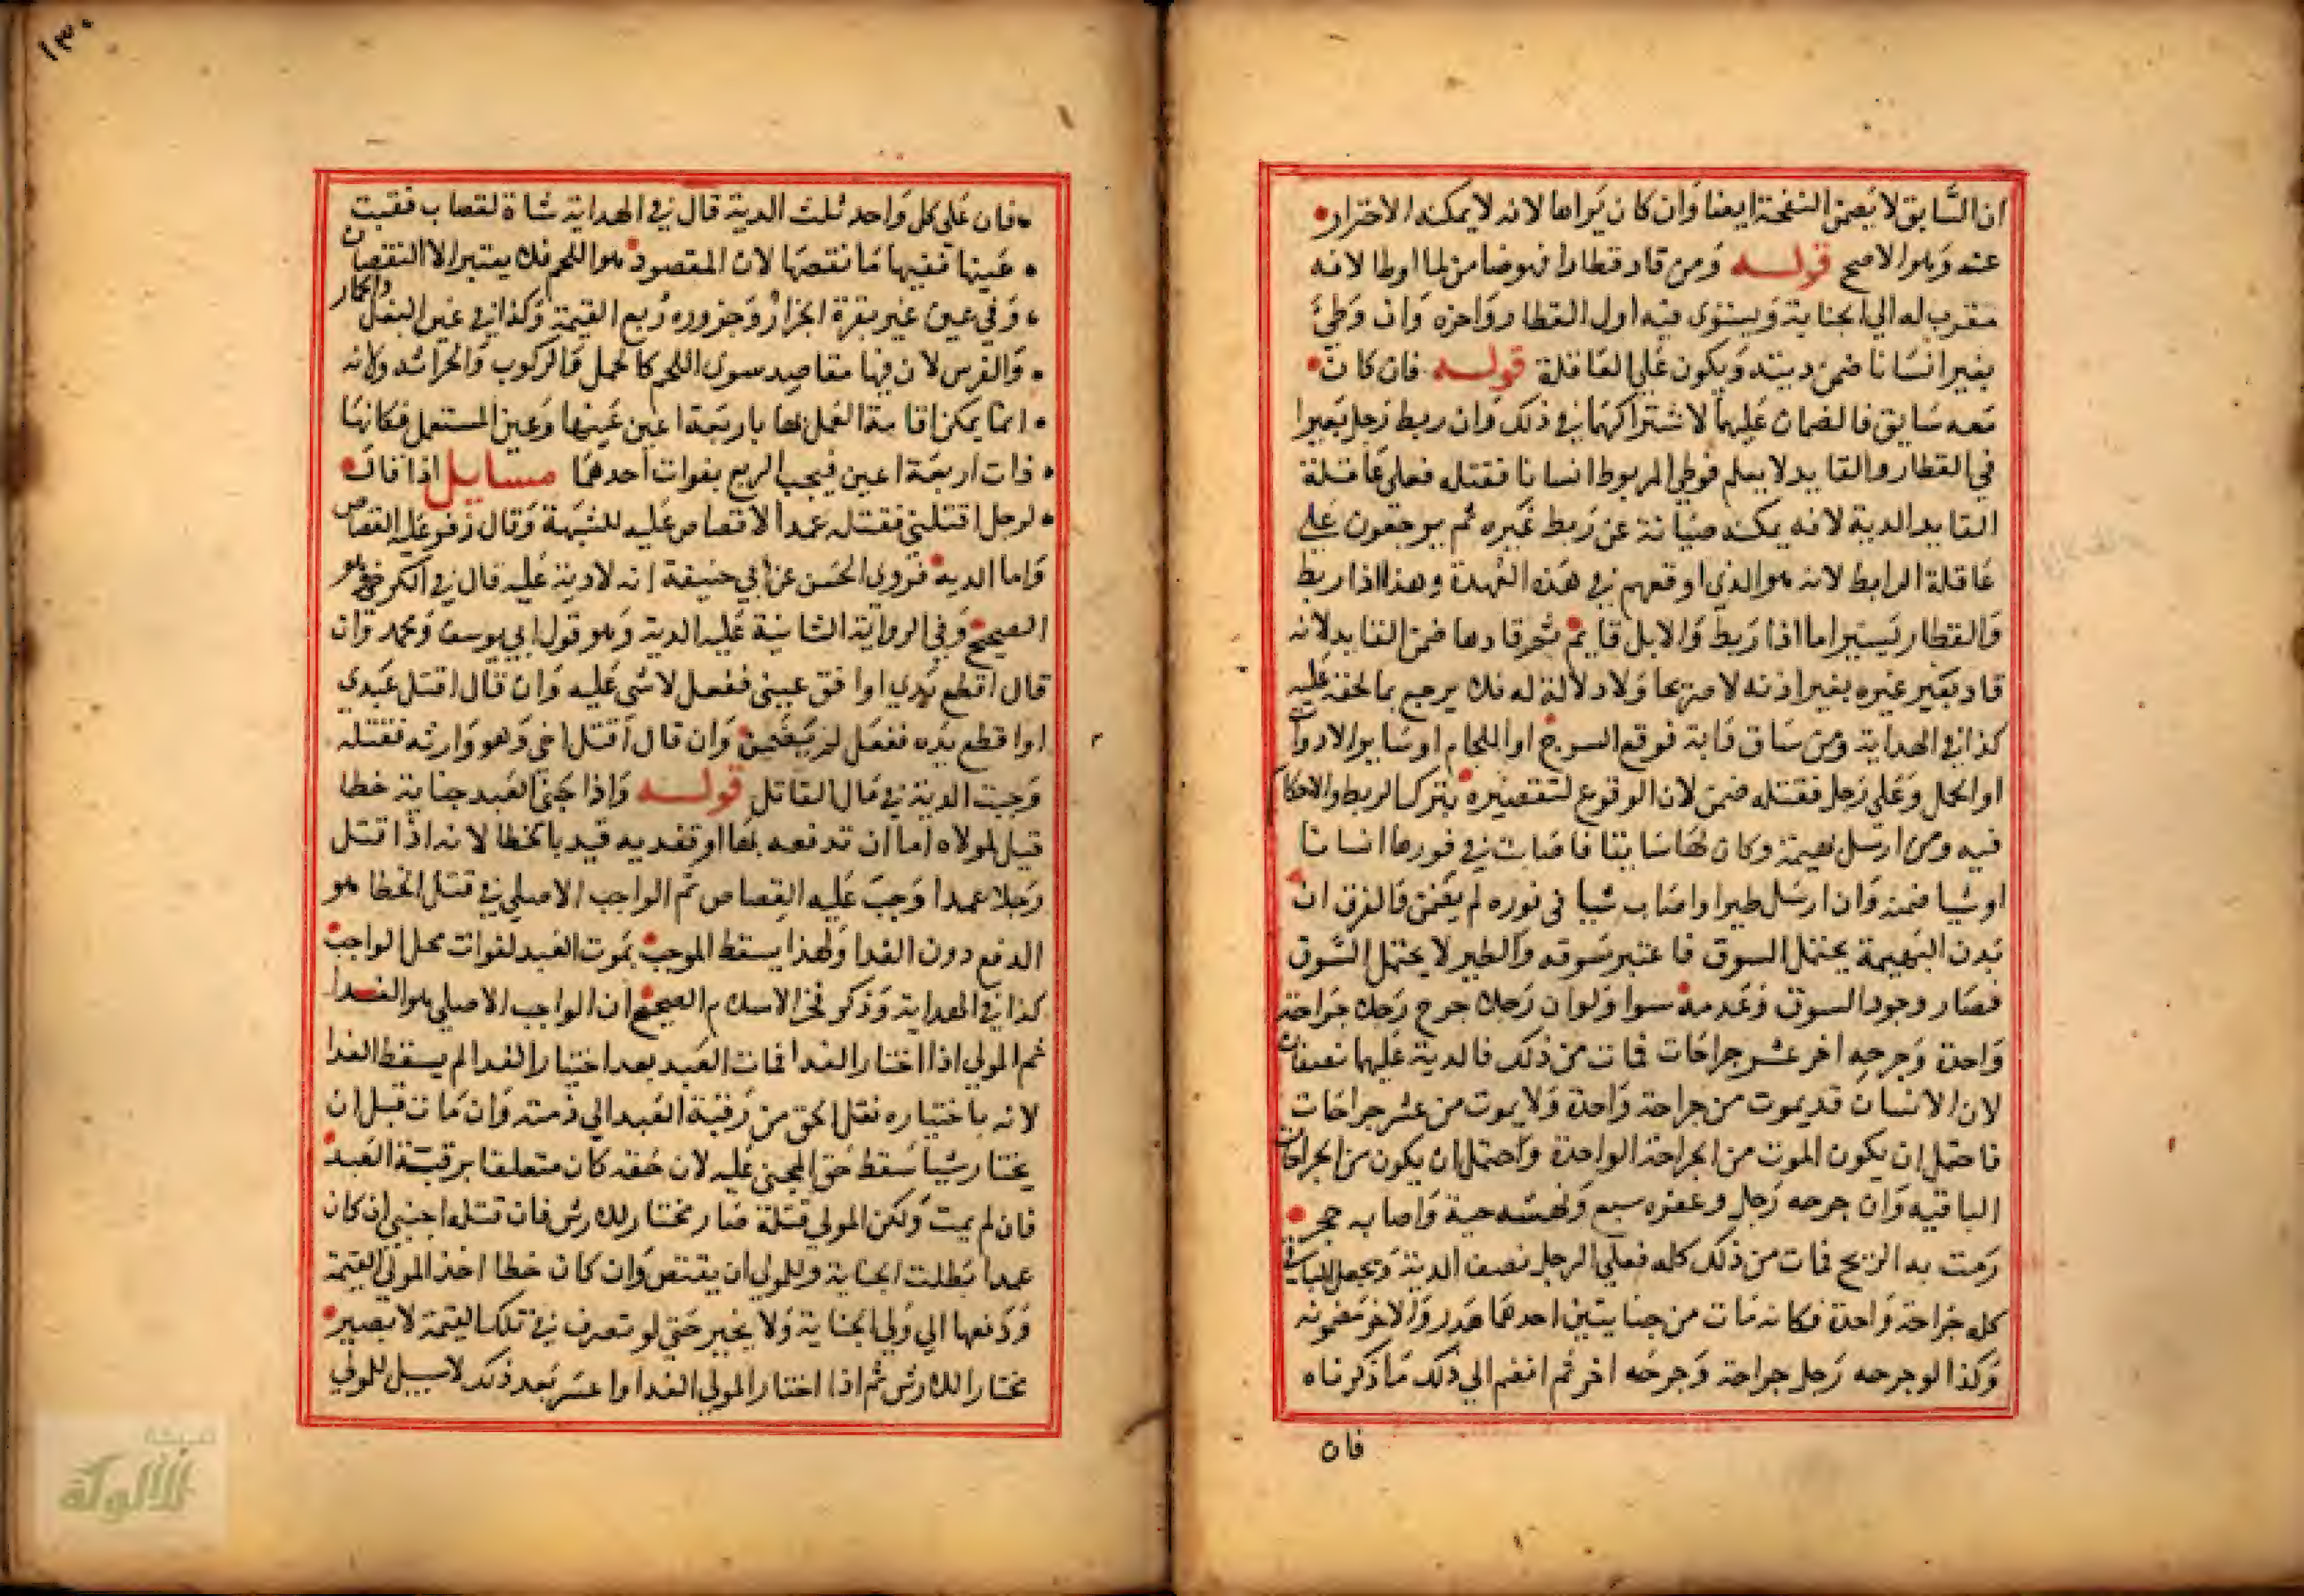 ان السابق لا يضمن النفحة ايضا وان كان يراها لانه لا يمكنه الاحتراز
عنه وهو الاصح قوله ومن قاد قطارا فهو ضامن لما اوطا لانه
مقرب له الي الجناية ويستوي فيه اول القطار واخره وان وطئ
بعير انسانا ضمن ديته ويكون علي العاقلة قوله فان كان
معه سايق فالضمان عليهما لاشتراكهما في ذلك وان ربط رجل بعيرا
في القطار والقايد لا يعلم فوطي المربوط انسانا فقتله فعلي عاقلة
القايد الدية لانه يمكنه صيانة عن ربط غيره ثم يرجعون علي
عاقلة الرابط لانه هو الذي اوقعهم في هذه العهدة وهذا اذا ربط
والقطار يسير اما اذا ربط والابل قايم ثم قادها ضمن القايد لانه
قاد بعير غيره بغير اذنه لا صريحا ولا دلالة له فلا يرجع بما لحقه عليه
كذا في الهداية ومن ساق دابة فوقع السرج او اللجام او ساير الادوات
او الحمل وعلي رجل فقتله ضمن لان الوقوع لتقصيره بترك الربط والاحكام
فيه ومن ارسل بهيمة وكان لها سايقا فاصابت في فورها انسانا
او شيا ضمنه وان ارسل طيرا واصاب شيا في فوره لم يضمن والفرق ان
بدن البهيمة يحتمل السوق فاعتبر سوقه والطير لا يحتمل السوق
فصار وجود السوق وعدمه سوا ولو ان رجلا جرح رجلا جراحة
واحدة وجرحه اخر عشر جراحات فمات من ذلك فالدية عليهما نصفان
لان الانسان قد يموت من جراحة واحدة ولا يموت من عشر جراحات
فاحتمل ان يكون الموت من الجراحة الواحدة واحتمل ان يكون من الجراحات
الباقيه وان جرحه رجل وعقره سبع ونهشه حية واصابه حجر
رمت به الريح فمات من ذلك كله فعلي الرجل نصف الدية ويجعل الباقي
كله جراحة واحدة فكانه مات من جنايتين احدهما هدر والاخر مضمونه
وكذا لو جرحه رجل جراحة وجرحه اخر ثم انضم الي ذلك ما ذكرناه
فان
١٣٠
فان علي كل واحد ثلث الدية قال في الهداية شاة لقصاب فقيت
عينها ففيها ما نقصها لان المقصود هو اللحم فلا يعتبر الا النقصان
وفي عين غير بقرة الجزار وجزوره ربع القيمة وكذا في عين البغل والحمار
والفرس لان فيها مقاصد سوي اللحم كالحمل والركوب والحراثه ولانه
انما يمكن اقامة العمل بها باربعة اعين عينها وعين المستعمل فكانها
ذات اربعة اعين فيجب الربع بفوات احدهما مسايل اذا قال
لرجل اقتلني فقتله عمدا لا قصاص عليه للشبهة وقال زفر عليه القصاص
واما الديه فروي الحسن عن ابي حنيفة انه لا دية عليه قال في الكرخي وهو
الصحيح وفي الرواية الثانية عليه الدية وهو قول ابي يوسف ومحمد وان
قال اقطع يدي او افق عيني ففعل لا شي عليه وان قال اقتل عبدي
او اقطع يده ففعل لم يضمن وان قال اقتل اخي وهو وارثه فقتله
وجبت الدية في مال القاتل قوله واذا جني العبد جناية خطا
قيل لمولاه اما ان تدفعه بها او تفديه قيد بالخطا لانه اذا قتل
رجلا عمدا وجب عليه القصاص ثم الواجب الاصلي في قتل الخطا هو
الدفع دون الفدا ولهذا يسقط الموجب بموت العبد لفوات محل الواجب
كذا في الهداية وذكر فخر الاسلام الصحيح ان الواجب الاصلي هو الفدا
ثم المولي اذا اختار الفدا فمات العبد بعد اختيار الفدا لم يسقط الفدا
لانه باختياره نقل الحق من رقبة العبد الي ذمته وان مات قبل ان
يختار شيا سقط حق المجني عليه لان حقه كان متعلقا برقبة العبد
فان لم يمت ولكن المولي قتلة صار مختارا للارش فان قتله اجنبي ان كان
عمدا بطلت الجناية وللمولي ان يقتص وان كان خطا اخذ المولي القيمة
ودفعها الي ولي الجناية ولا يخير حتي لو تصرف في تلك القيمة لا يصير
مختارا للارش ثم اذا اختار المولي الفدا واعسر بعد ذلك لا سبيل للولي
شبكة
الألوكة